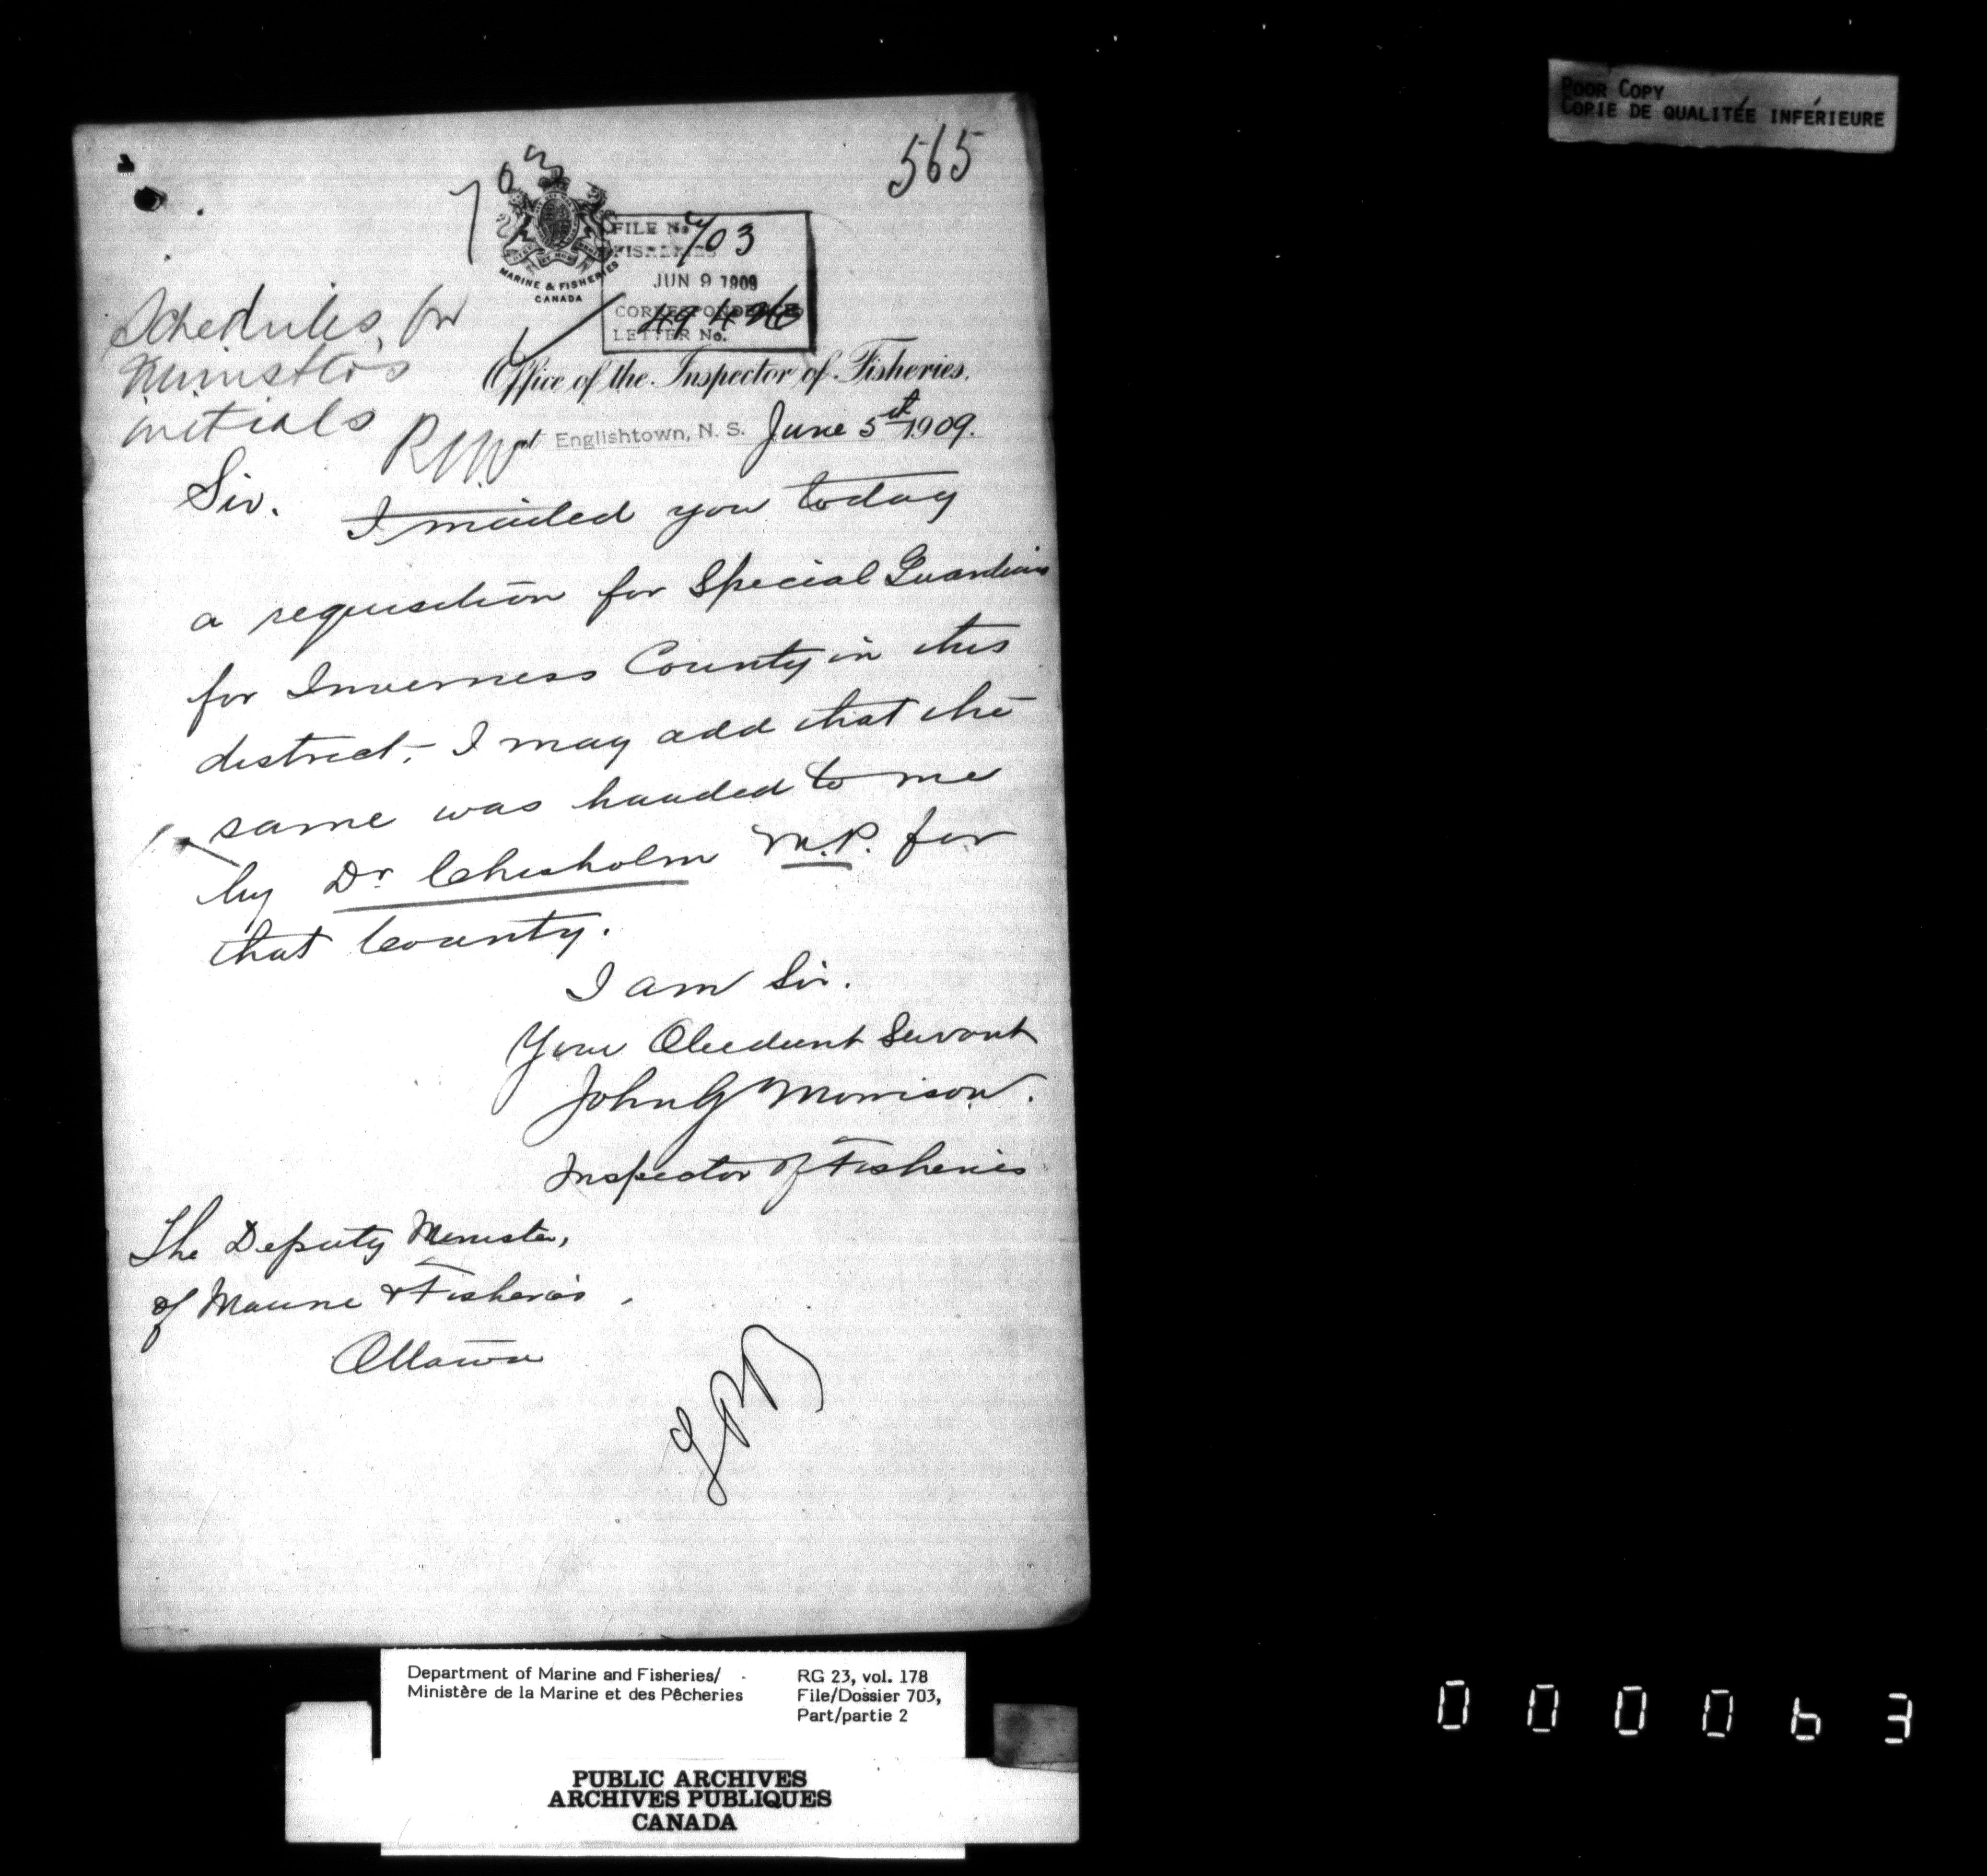 POOR COPY
COPIE DE QUALITÉE INFÉRIEURE
565
703
MARINE & FISHERIES
CANADA
FILE No. 703
FISHERIES
JUN 9 1909
CORRESPONDENCE
LETTER No.
Schedules for
Ministers
initials
Office of the Inspector of Fisheries.
Englishtown, N. S. June 5th 1909.
Sir. I mailed you today
a requisition for Special Guardians
for Inverness County in this
district, - I may add that the
same was handed to me
by Dr Chisholm M.P. for
that County.
I am Sir.
Your Obedient Servant
John G Morrison.
Inspector of Fisheries
The Deputy Minister,
of Marine & Fisheries,
Ottawa
Department of Marine and Fisheries/
Ministère de la Marine et des Pêcheries
RG 23, vol. 178
File/Dossier 703,
Part/partie 2
PUBLIC ARCHIVES
ARCHIVES PUBLIQUES
CANADA
000063